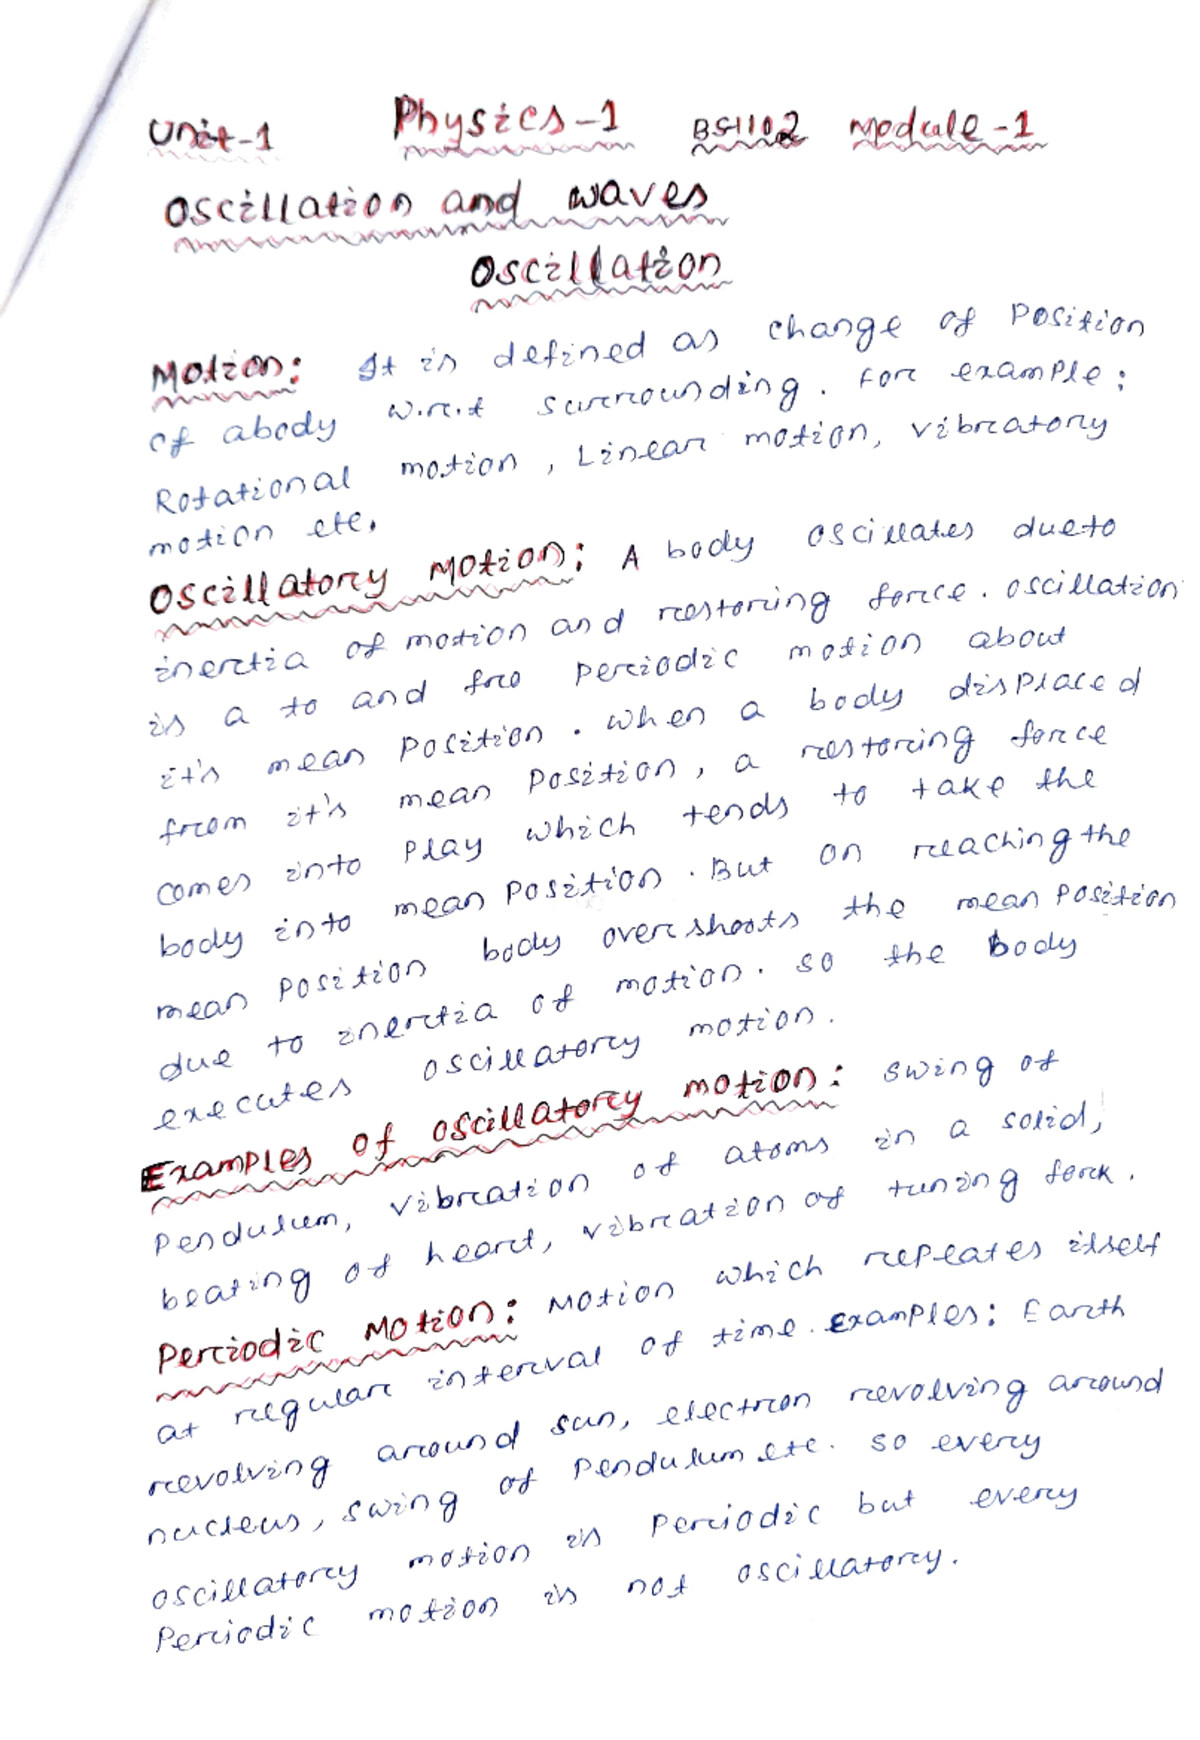 Unit-1 Physics-1 BS1102 Module-1
Oscillation and waves
Oscillation
Motion: It is defined as change of Position
of abody w.r.t surrounding. For example:
Rotational motion, Linear motion, vibratory
motion etc.
Oscillatory Motion: A body oscillates dueto
inertia of motion and restoring force. oscillation
is a to and fro periodic motion about
it's mean Position. When a body displaced
from it's mean Position, a restoring force
comes into Play which tends to take the
body into mean Position. But on reaching the
mean Position body overshoots the mean Position
due to inertia of motion. so the body
executes oscillatory motion.
Examples of oscillatory motion: swing of
Pendulum, vibration of atoms in a solid,
beating of heart, vibration of tuning fork.
Periodic Motion: Motion which repeates itself
at regular interval of time. Examples: Earth
revolving around sun, electron revolving around
nucleus, swing of Pendulum etc. so every
oscillatory motion is Periodic but every
Periodic motion is not oscillatory.